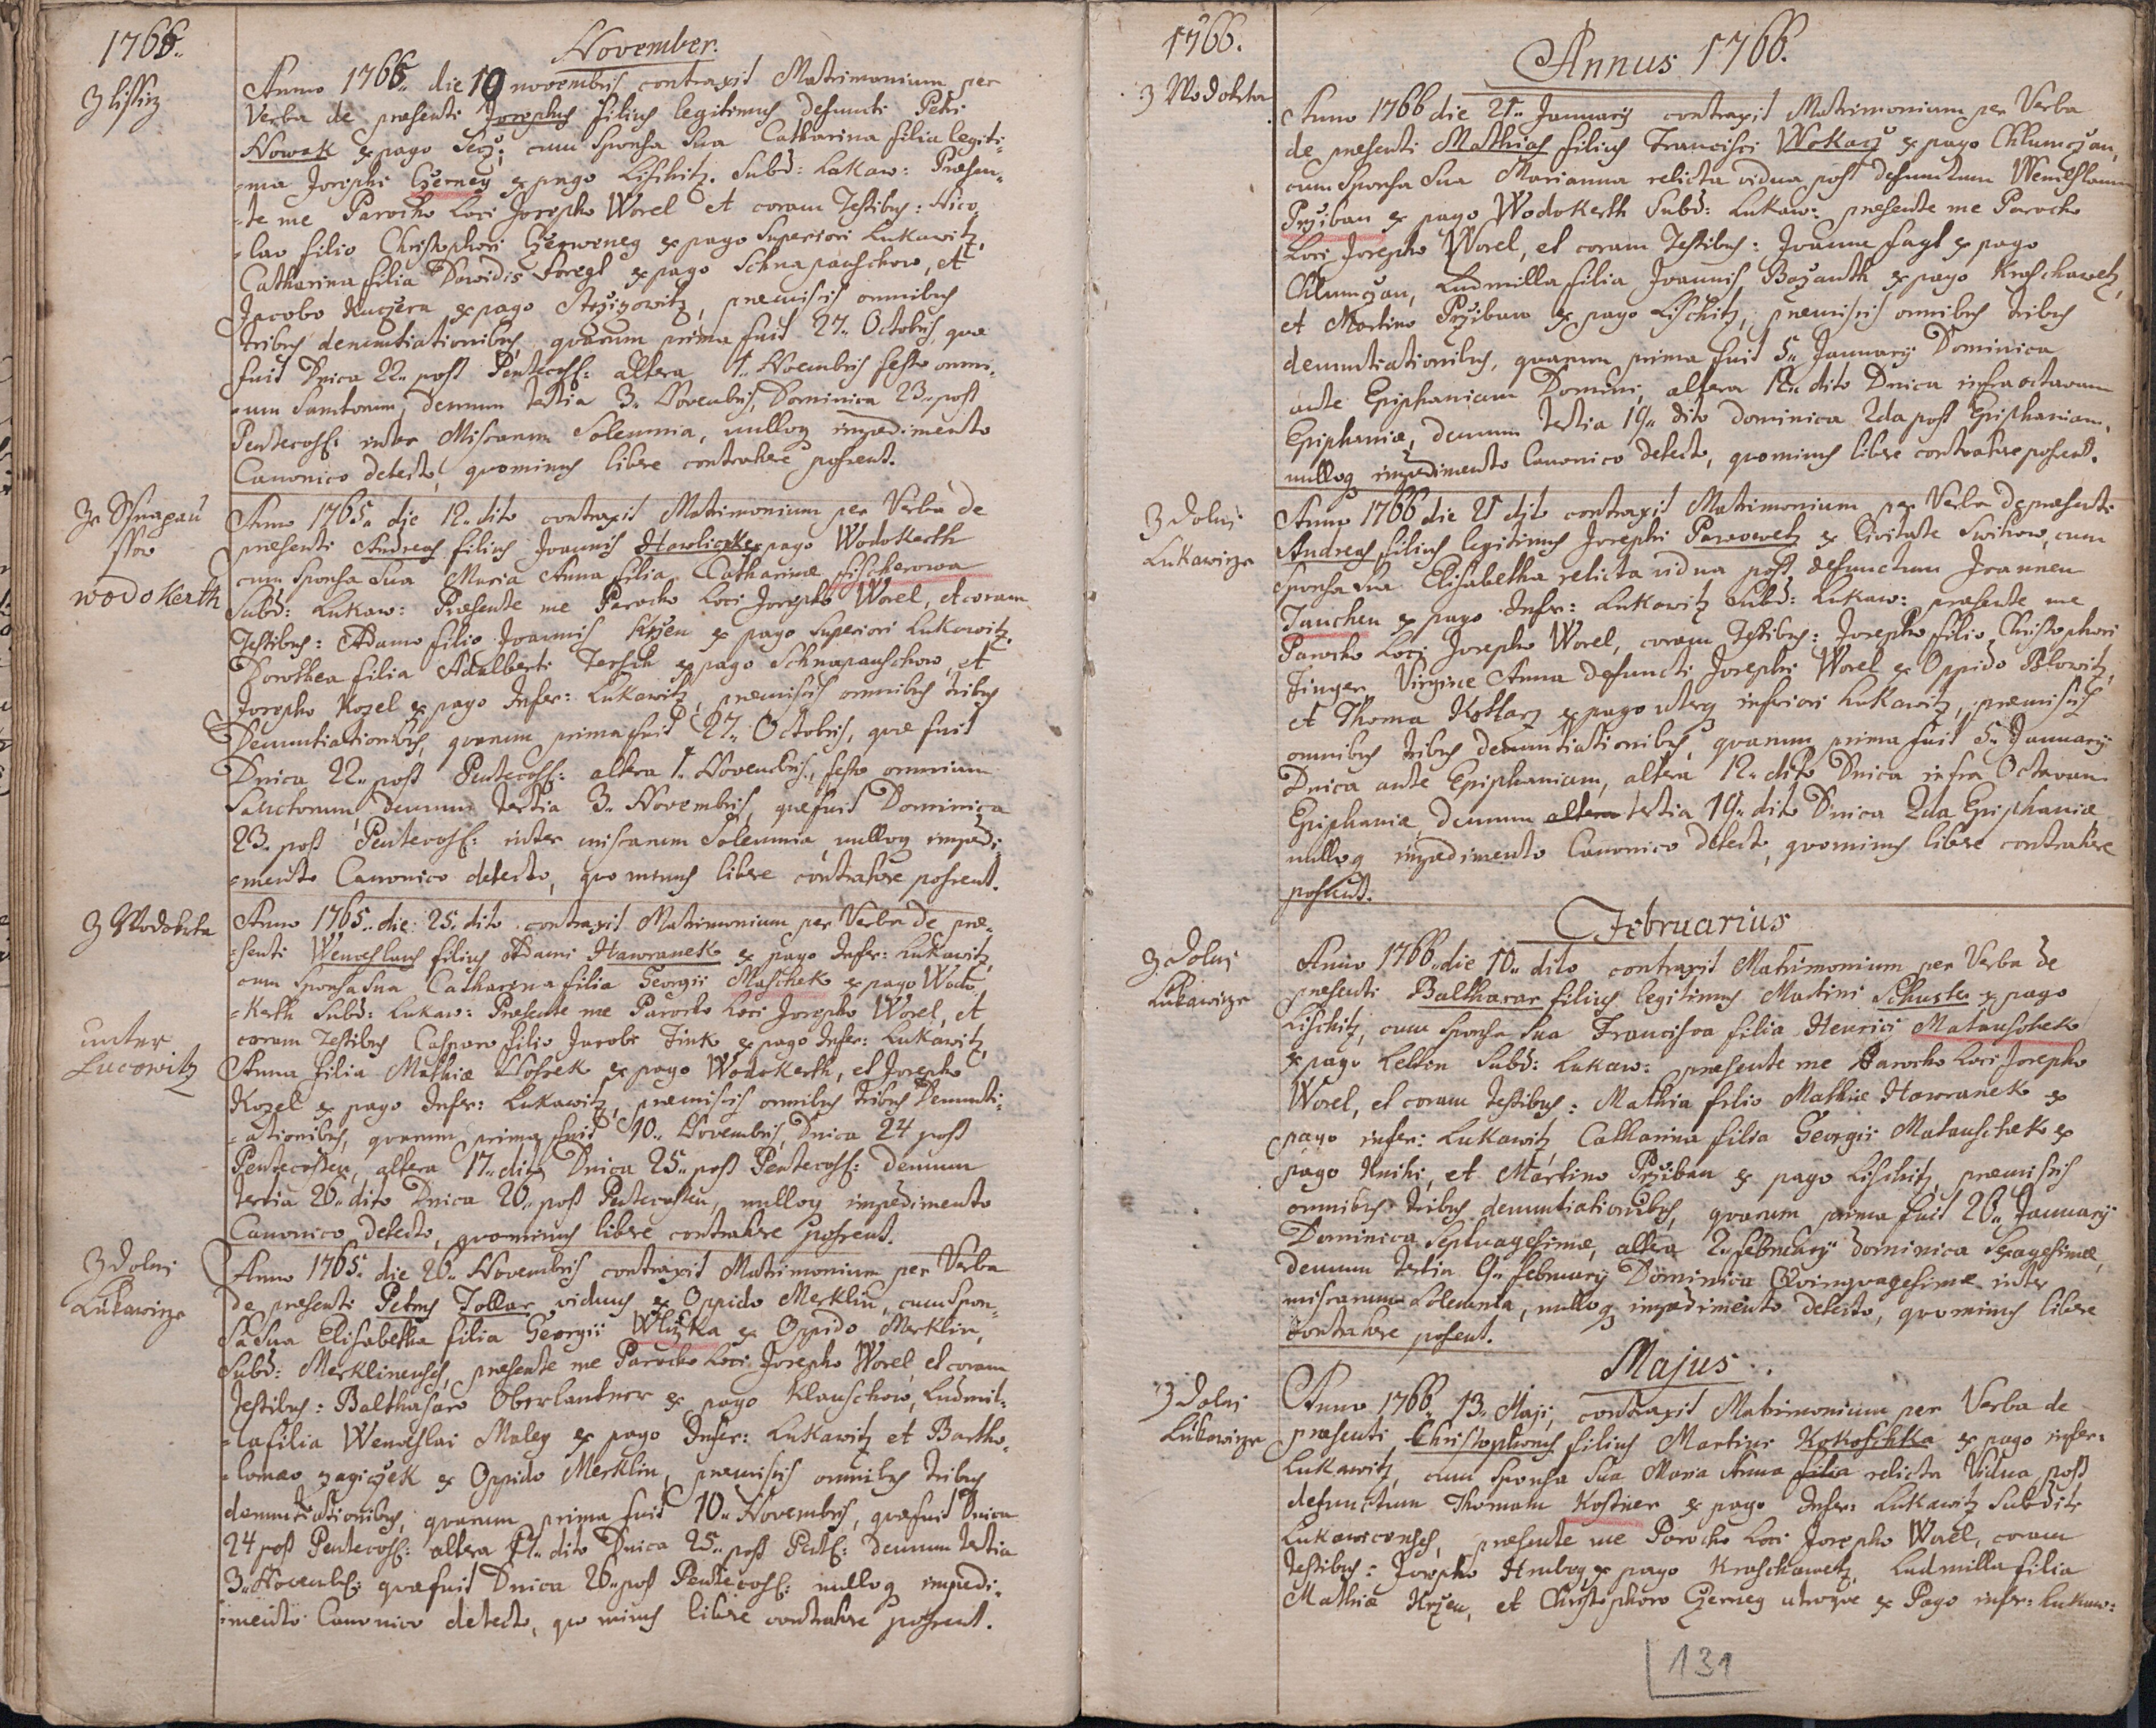 1765.
November.
Z lissitz
Anno 1765. die 19 novembris contraxit Matrimonium per
Verba de præsenti Josephus filius legitimus defuncti Petri
Nowak ex pago cum Sponsa Sua Catharina filia legiti-
-ma Josephi Czerney ex pago Lischitz. Subd: Lukaw: Præsen-
-te me Parocho Loci Josepho Worel et coram Testibus: Nico-
-lao filio Christophori Czerweney ex pago Superiori Lukawitz,
Catharina filia Dawidis Foregt ex pago Schnapauschow, et
Jacobo Kuczera ex pago Strzizowitz, præmissis omnibus
tribus denuntiationibus, quarum prima fuit 27. Octobris, quæ
fuit Dnica 22. post Pentecost: altera 1. Novembris festo omni-
-um Sanctorum, demum tertia 3. Novembris, Dominica 23. post
Pentecost: inter Missarum Solemnia, nulloq impedimento
Canonico detecto, quominus libere contrahere possent.
Ze Sſnapau
ſſow
wodokerth
Anno 1765. die 12. dito contraxit Matrimonium per Verba de
præsenti Andreas filius Joannis Hawliczek ex pago Wodokerth
cum Sponsa Sua Maria Anna filia Catharinæ Fischerowa
Subd: Lukaw: Præsente me Parocho Loci Josepho Worel, et coram
Testibus: Adamo filio Joannis Krzen ex pago Superiori Lukawitz.
Dorothea filia Adalberti Tersch ex pago Schnapauschow, et
Josepho Kozel ex pago Infer: Lukawitz, præmissis omnibus tribus
Denuntiationibus, quarum prima fuit 27. Octobris, quæ fuit
Dnica 22. post Pentecost: altera 1. Novembris, festo omnium
Sanctorum, demum tertia 3. Novembris, quæ fuit Dominica
23. post Pentecost: inter missarum Solemnia, nulloq impedi-
-mento Canonico detecto, quo minus libere contrahere possent.
Z Wodokrta
unter
Lucowitz
Anno 1765. die: 25. dito contraxit Matrimonium per Verba de præ-
-senti Wenceslaus filius Adami Hawranek ex pago Infer: Lukawitz,
cum Sponsa Sua Catharina filia Georgii Maschek ex pago Wodo-
-Kerth Subd: Lukaw: Præsente me Parocho Loci Josepho Worel, et
coram Testibus Casparo filio Jacobi Fink ex pago Infer: Lukawitz,
Anna filia Mathiæ Nossek ex pago Wodokerth, et Josepho
Kozel ex pago Infer: Lukawitz, præmissis omnibus tribus Denunti-
-ationibus, quarum prima fuit 10. Novembris, Dnica 24 post
Pentecosten, altera 17. dito Dnica 25. post Pentecost: demum
tertia 26. dito Dnica 26. post Pentecosten, nulloq impedimento
Canonico detecto, quominus libere contrahere possent.
Z Dolni
Lukawicze
Anno 1765. die 26. Novembris contraxit Matrimonium per Verba
de præsenti Petrus Tollar viduus ex Oppido Merklin, cum Spon-
sa Sua Elisabetha filia Georgii Wlizka ex Oppido Merklin,
Subd: Merklinensis, præsente me Parocho Loci Josepho Worel, et coram
Testibus: Balthasaro Oberlantner ex pago Klauschow, Ludmil-
-la filia Wenceslai Maley ex pago Infer: Lukawitz et Bartho-
-lomæo zagiczek ex Oppido Merklin, præmissis omnibus tribus
denuntiationibus, quarum prima fuit 10. Novembris, quæ fuit Dnica
24 post Pentecost: altera 17. dito Dnica 25. post Pent: demum tertia
3. Novemb: quæ fuit Dnica 26. post Pentecost: nulloq impedi-
mento Canonico detecto, quo minus libere contrahere possent.
1766.
Annus 1766.
Z Wodokrta
Anno 1766 die 21. January contraxit Matrimonium per Verba
de præsenti Mathias filius Francisci Wokacz ex pago Chlumczan,
cum Sponsa Sua Marianna relicta vidua post defunctum Wenceslaum
Prziban ex pago Wodokerth Subd: Lukaw: præsente me Parocho
Loci Josepho Worel, et coram Testibus: Joanne Fagt ex pago
Chlumczan, Ludmilla filia Joannis Bozanth ex pago Kraschawetz,
et Martino Prziban ex pago Lischitz, præmissis omnibus tribus
denuntiationibus, quarum prima fuit 5. January Dominica
ante Epiphaniam Domini, altera 12. dito Dnica infra octavam
Epiphaniæ, demum tertia 19. dito dominica 2da post Epiphaniam,
nulloq impedimento Canonico detecto, quominus libere contrahere possent.
Z Dolni
Lukawicze
Anno 1766 die 21 dito contraxit Matrimonium per Verba de præsenti
Andreas filius legitimus Josephi Parowetz ex Civitate Swihow, cum
Sponsa Sua Elisabetha relicta vidua post defunctum Joannem
Tauchen ex pago Infer: Lukawitz Subd: Lukaw: præsente me
Parocho Loci Josepho Worel, coram Testibus: Josepho filio Christophori
Finger, Virgine Anna defuncti Josephi Worel ex Oppido Blowitz,
et Thoma Kottarz ex pago uterq inferiori Lukawitz, præmissis
omnibus tribus denuntiationibus, quarum prima fuit 5. January
Dnica ante Epiphaniam, altera 12. dito Dnica infra Octavam
Epiphaniæ, demum altera tertia 19. dito Dnica 2da Epiphaniæ
nulloq impedimento Canonico detecto, quominus libere contrahere
possent.
Februarius
Z Dolni
Lukawicze
Anno 1766. die 10. dito contraxit Matrimonium per Verba de
præsenti Balthasar filius legitimus Martini Schuster ex pago
Lischitz, cum Sponsa Sua Francisca filia Henrici Matauschek
ex pago Letten Subd: Lukaw: præsente me Parocho Loci Josepho
Worel, et coram Testibus: Mathia filio Mathiæ Hawranek ex
pago infer: Lukawitz, Catharina filia Georgii Matauschek ex
pago Knihi, et Martino Prziban ex pago Lischitz, præmissis
omnibus tribus denuntiationibus, quarum prima fuit 26. January
Dominica Septuagesimæ, altera 2. february dominica Sexagesimæ,
demum tertia 9. february Dominica Quinquagesimæ inter
missarum Solemnia, nulloq impedimento detecto, quominus libere
contrahere possent.
Majus
Z Dolni
Lukawicze
Anno 1766. 13. Maji, contraxit Matrimonium per Verba de
præsenti Christophorus filius Martini Kokoschka ex pago infer:
Lukawitz, cum Sponsa Sua Maria Anna filia relicta Vidua post
defunctum Thomam Kostner ex pago Infer: Lukawitz Subdit:
Lukawicensis, præsente me Parocho Loci Josepho Worel, coram
Testibus: Josepho Hruboy ex pago Kraschawetz, Ludmilla filia
Mathiæ Krzen, et Christophoro Czerney utroque ex Pago infer: Lukaw:
131